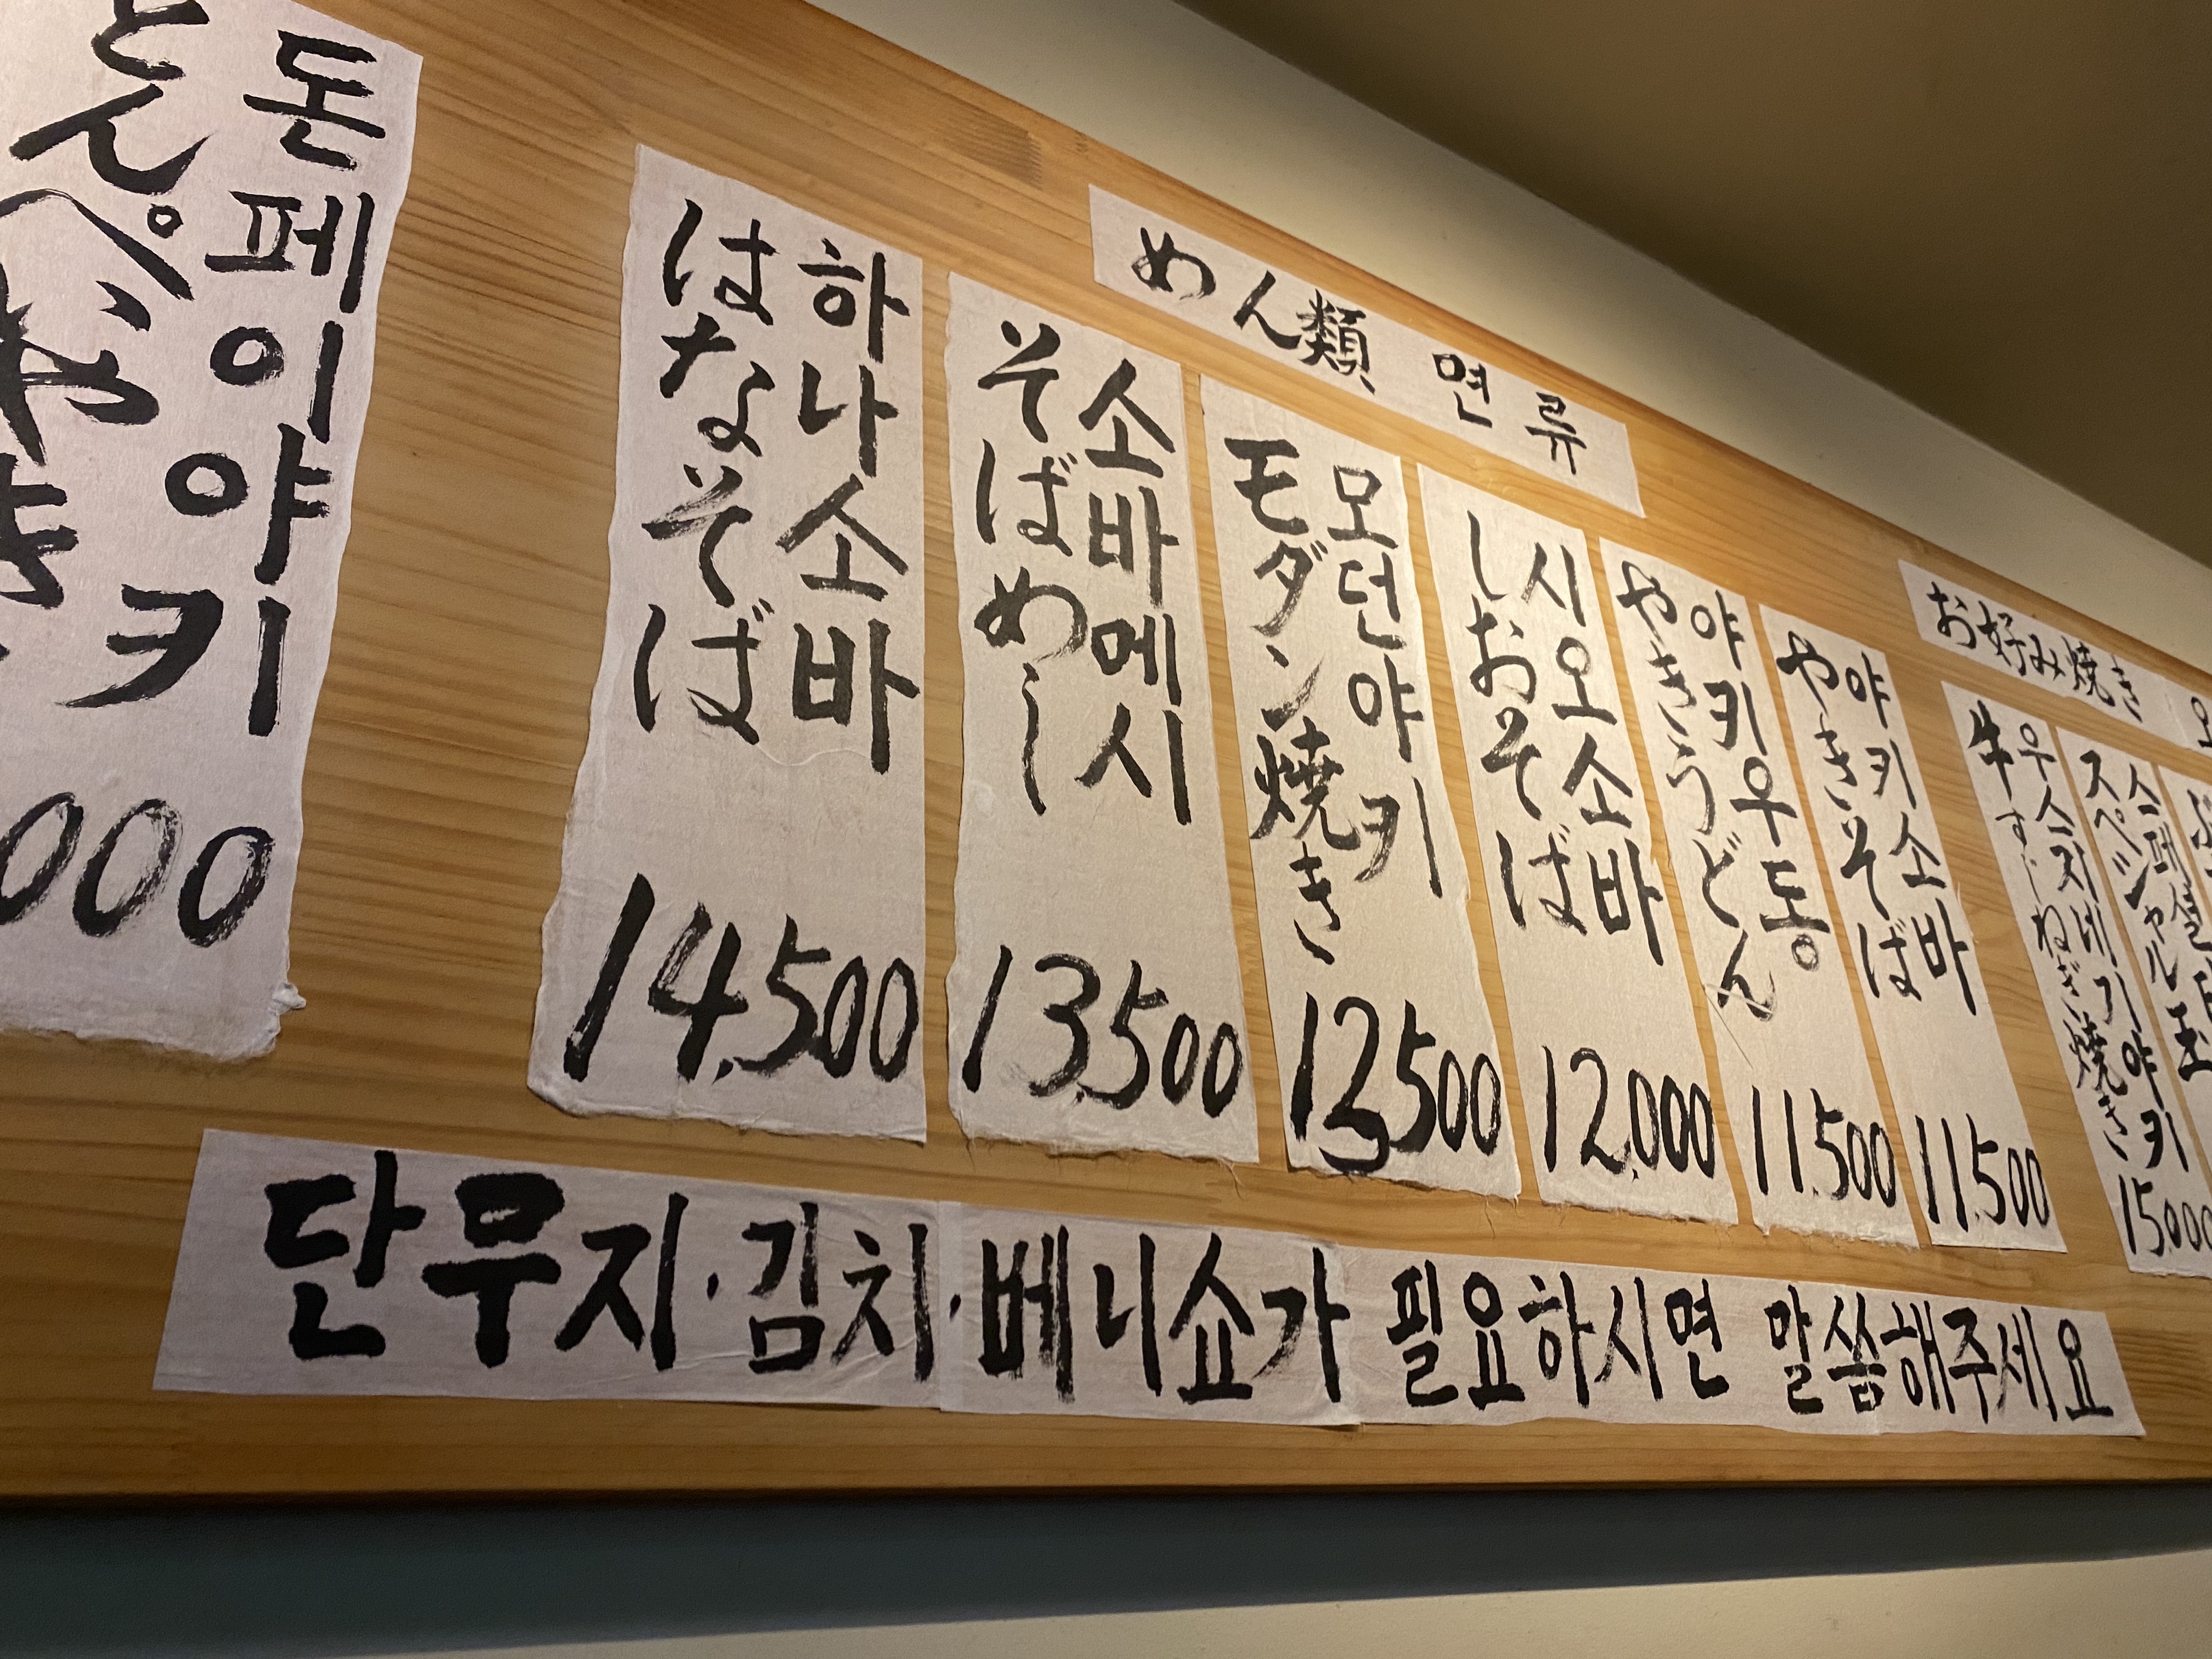 とんぺい焼き
돈페이야키
000
はなそば
하나소바
14,500
めん類 면류
そばめし
소바메시
13,500
モダン焼き
모던야키
13,500
しおそば
시오소바
12,000
やきうどん
야키우동
11,500
やきそば
야키소바
11,500
お好み焼き 오
牛すじねぎ焼き
우스지네기야키
15,000
スペシャル玉
스페셜
단무지·김치·베니쇼가 필요하시면 말씀해주세요